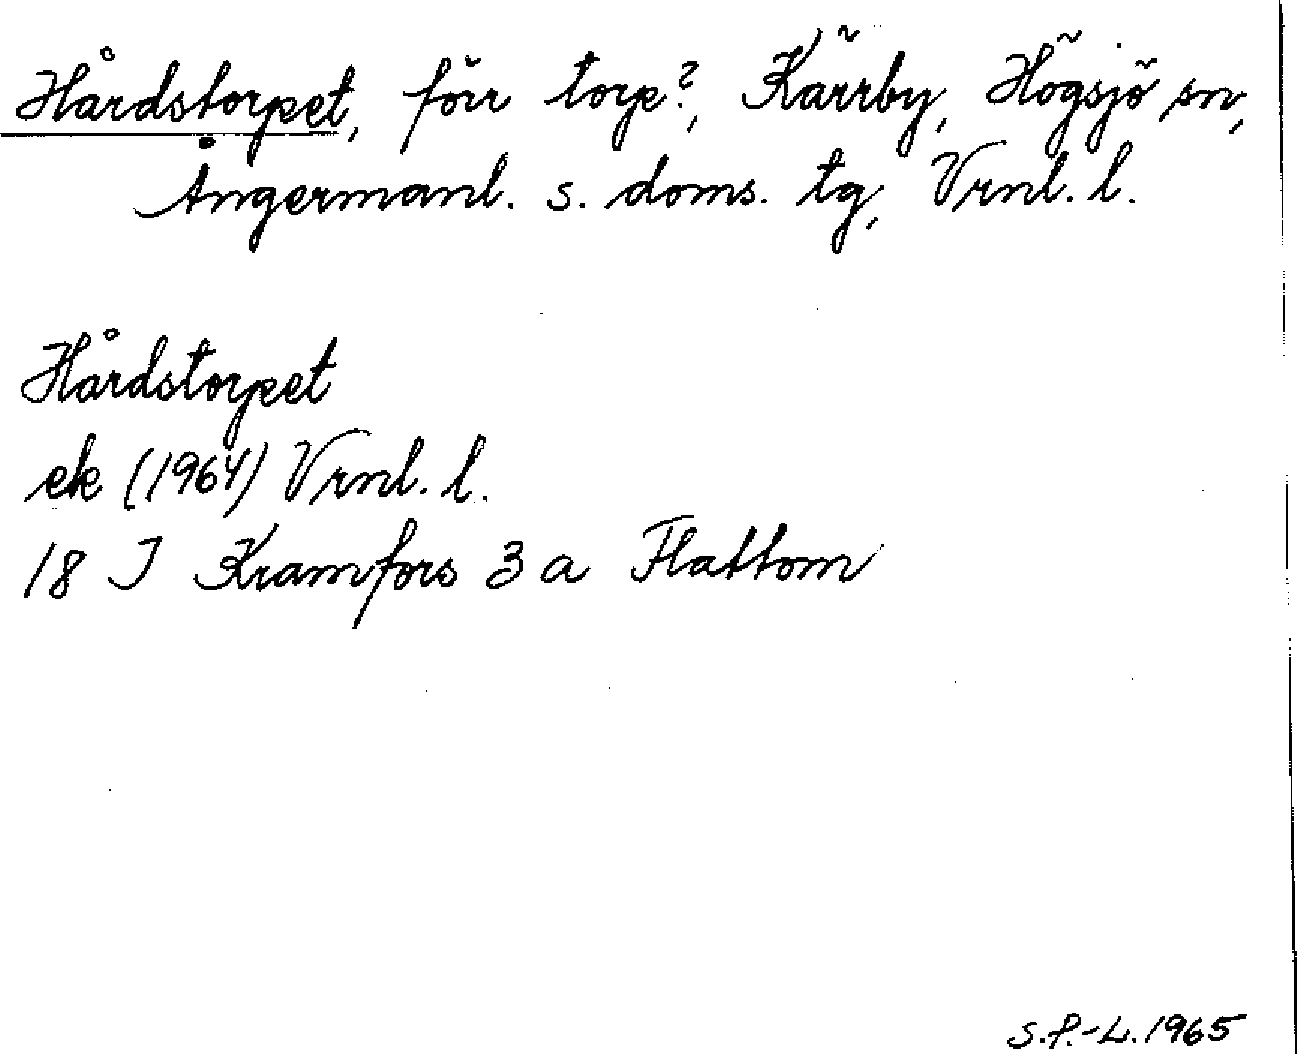 Hårdstorpet, förr torp?, Kärrby, Högsjö sn,
Ångermanl. s. doms. tg, Vrnl. l.
Hårdstorpet
ek (1964) Vrnl. l.
18 J Kramfors 3 a Flattom
S.P.-L. 1965